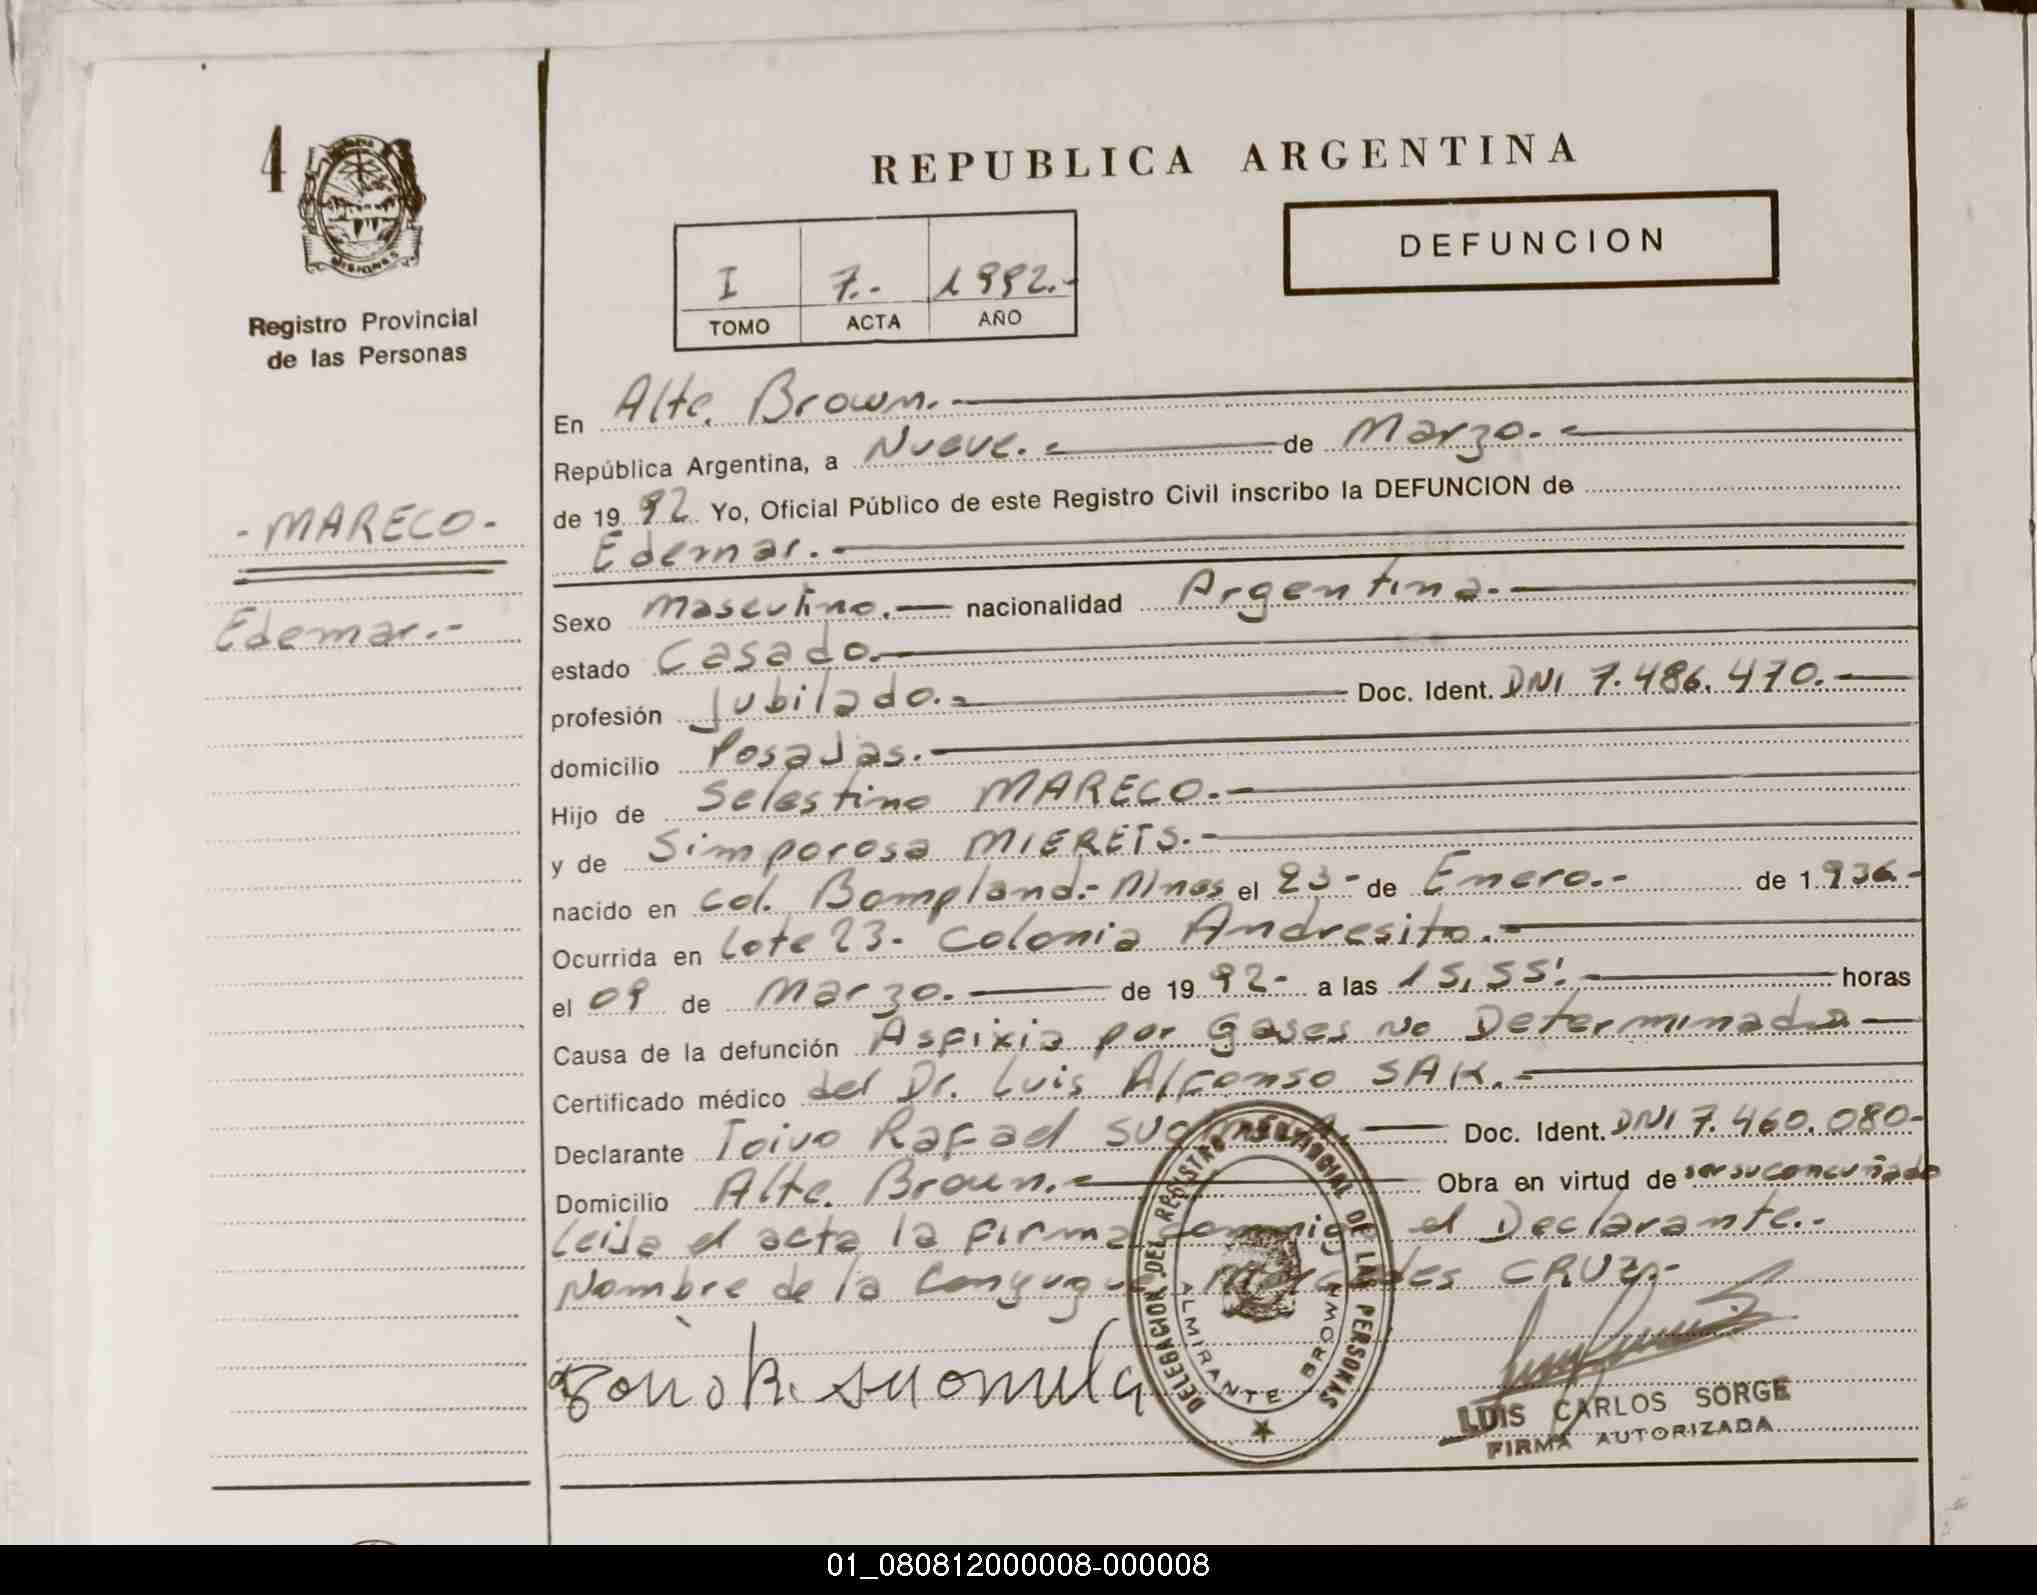 4
MISIONES
Registro Provincial
de las Personas
- MARECO -
Edemar.-
REPUBLICA ARGENTINA
DEFUNCION
I 7.- 1992.-
TOMO ACTA AÑO
En Alte. Brown.-
República Argentina, a Nueve.- de Marzo.-
de 1992 Yo, Oficial Público de este Registro Civil inscribo la DEFUNCION de
Edemar.-
Sexo Masculino.- nacionalidad Argentina.-
estado Casado.-
profesión Jubilado.- Doc. Ident. DNI 7.486.470.-
domicilio Posadas.-
Hijo de Selestino MARECO.-
y de Simporosa MIERETS.-
nacido en Col. Bompland.- Mnes el 23- de Enero.- de 1.936.-
Ocurrida en Lote 23- Colonia Andresito.-
el 09 de Marzo.- de 1992- a las 15,55'.- horas
Causa de la defunción Asfixia por Gases No Determinada
Certificado médico del Dr. Luis Alfonso SAK.-
Declarante Toivo Rafael Doc. Ident. DNI 7.460.080-
Domicilio Alte. Brown.- Obra en virtud de ser su concuñado
Leida el acta la firma conmigo el Declarante.-
Nombre de la Conyugue Mercedes CRUZ.-
DELEGACION DEL REGISTRO PROVINCIAL DE LAS PERSONAS
ALMIRANTE BROWN
LUIS CARLOS SORGE
FIRMA AUTORIZADA
01_080812000008-000008